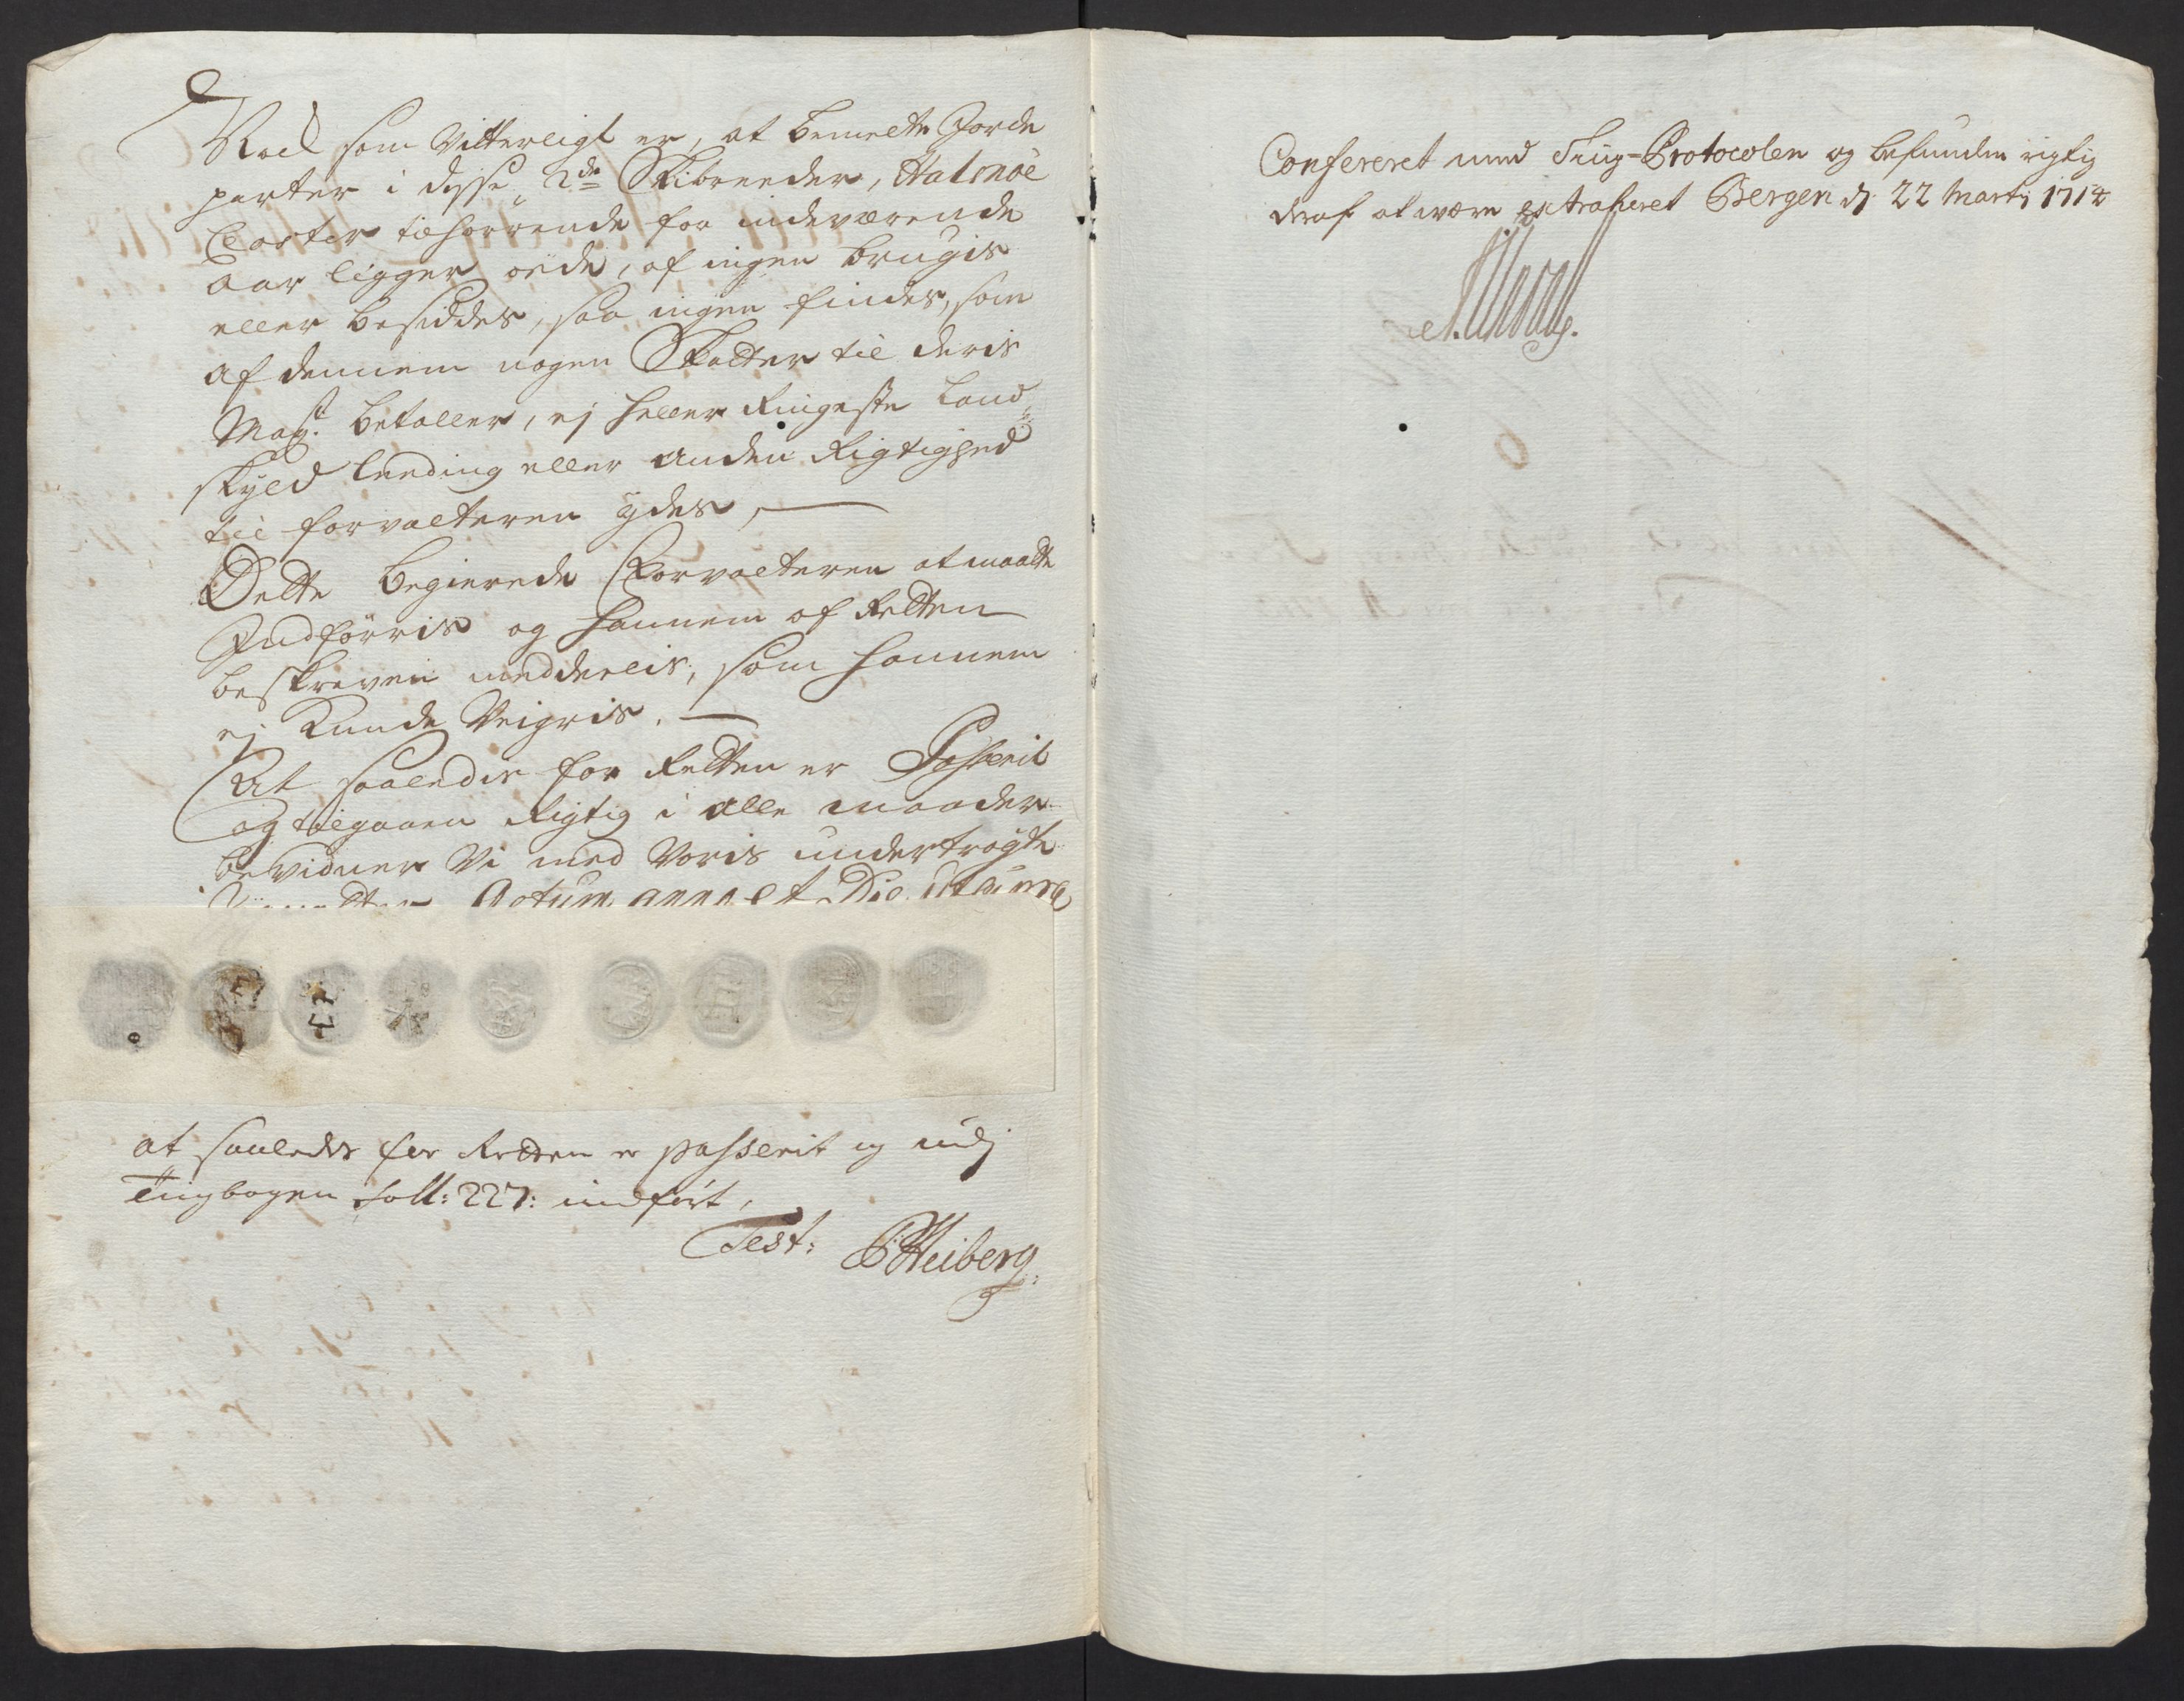 Vel som Vitterligt er, at bemelte Jorde
parter i disse 2de Skibreeder, Halsnöe
Closter tilhørrende for indeværende
Aar ligger øede, af ingen brugis
eller besiddes, saa ingen findes, som
af dennem nogen Skatter til deris
Mayst. betaller, ej heller Ringeste Land„
skyld leeding eller anden Rigtighed
til forvalteren ydes,
Dette begierede Forvalteren at maatte
Indførris og hannem af Retten
beskreven meddeelis, som hannem
ej Kunde Veigris.
At saaledis for Retten er Passerit
og tilgaaen Rigtig i alle maader
bevidner Vi med Voris undertrøgte
Zigneter Actum anno et Die ut supra
at saaledis for Retten er passerit og udj
Tingbogen foll: 227: indført,
Test: Heiberg
Confereret med Ting-Protocolen og befunden rigtig
deraf at være extraheret Bergen d. 22 Martij 1714